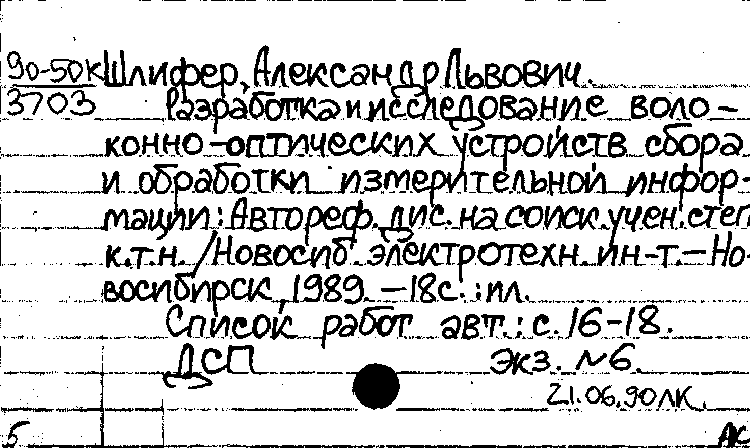 90-50К Шлифер, Александр Львович.
3703 Разработка и исследование воло-
конно-оптических устройств сбора
и обработки измерительной инфор-
мации: Автореф. дис. на соиск. учен. степ.
к.т.н. /Новосиб. электротехн. ин-т.-Но-
восибирск, 1989. -18с.:ил.
Список работ авт.: с. 16-18.
ДСП экз. №6.
21.06.90 ЛК.
5